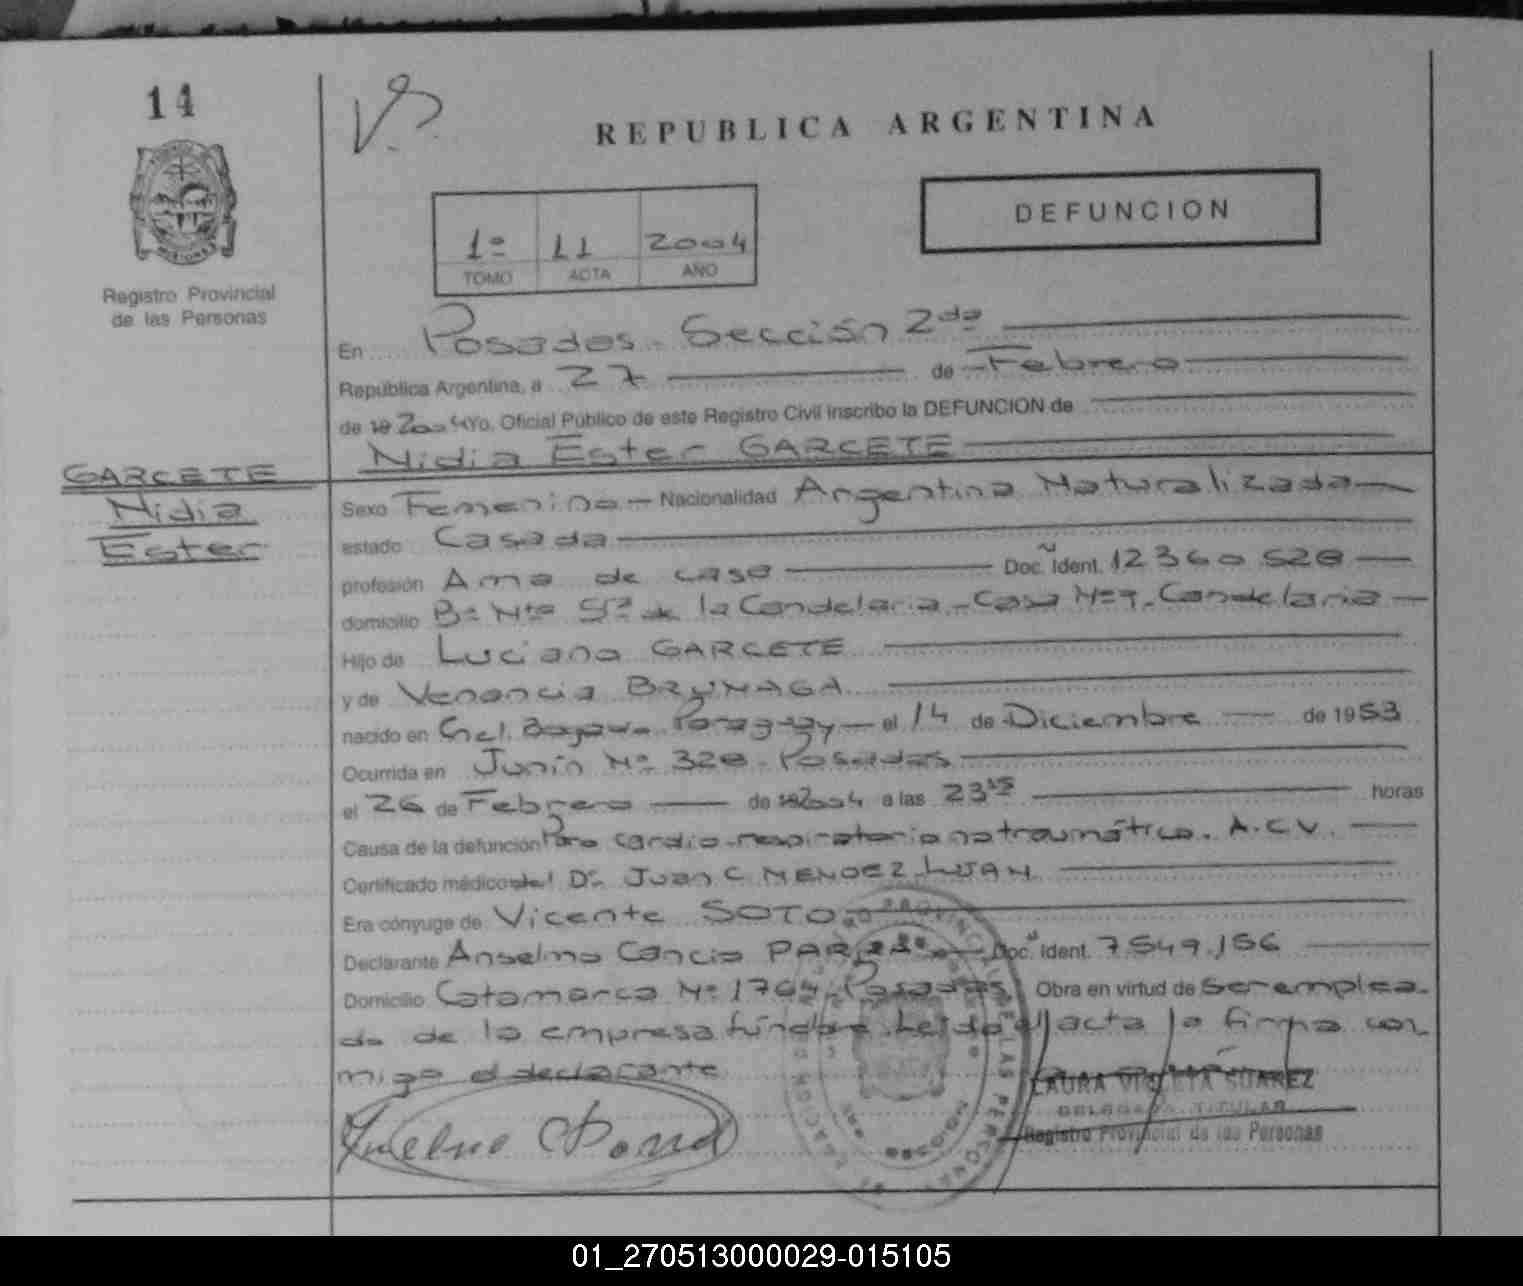 14
REPUBLICA ARGENTINA
DEFUNCION
1º 11 2004
TOMO ACTA AÑO
Registro Provincial
de las Personas
En Posadas - Sección 2da
República Argentina, a 27 de Febrero
de 19 2004 Yo, Oficial Público de este Registro Civil inscribo la DEFUNCION de
Nidia Ester GARCETE
GARCETE
Nidia
Ester
Sexo Femenino Nacionalidad Argentina Naturalizada
estado Casada
profesión Ama de casa Doc. Ident. 12.360.528
domicilio Bº Ntra Sra de la Candelaria - Casa Nº 9 - Candelaria
Hijo de Luciano GARCETE
y de Venancia
nacido en Gral. Paraguay el 14 de Diciembre de 1953
Ocurrida en Junín Nº 328 - Posadas
el 26 de Febrero de 19 2004 a las 23 horas
Causa de la defunción Paro cardio-respiratorio no traumático. A.C.V.
Certificado médico del Dr. Juan C. MENDEZ LUJAN
Era cónyuge de Vicente SOTO
Declarante Anselmo Cancio Doc. Ident. 7.549.156
Domicilio Catamarca Nº 1764 Posadas Obra en virtud de Ser emplea-
do de la empresa fúnebre. Leida el acta la firma con-
migo el declarante
LAURA VIOLETA SUAREZ
DELEGADA TITULAR
Registro Provincial de las Personas
01_270513000029-015105